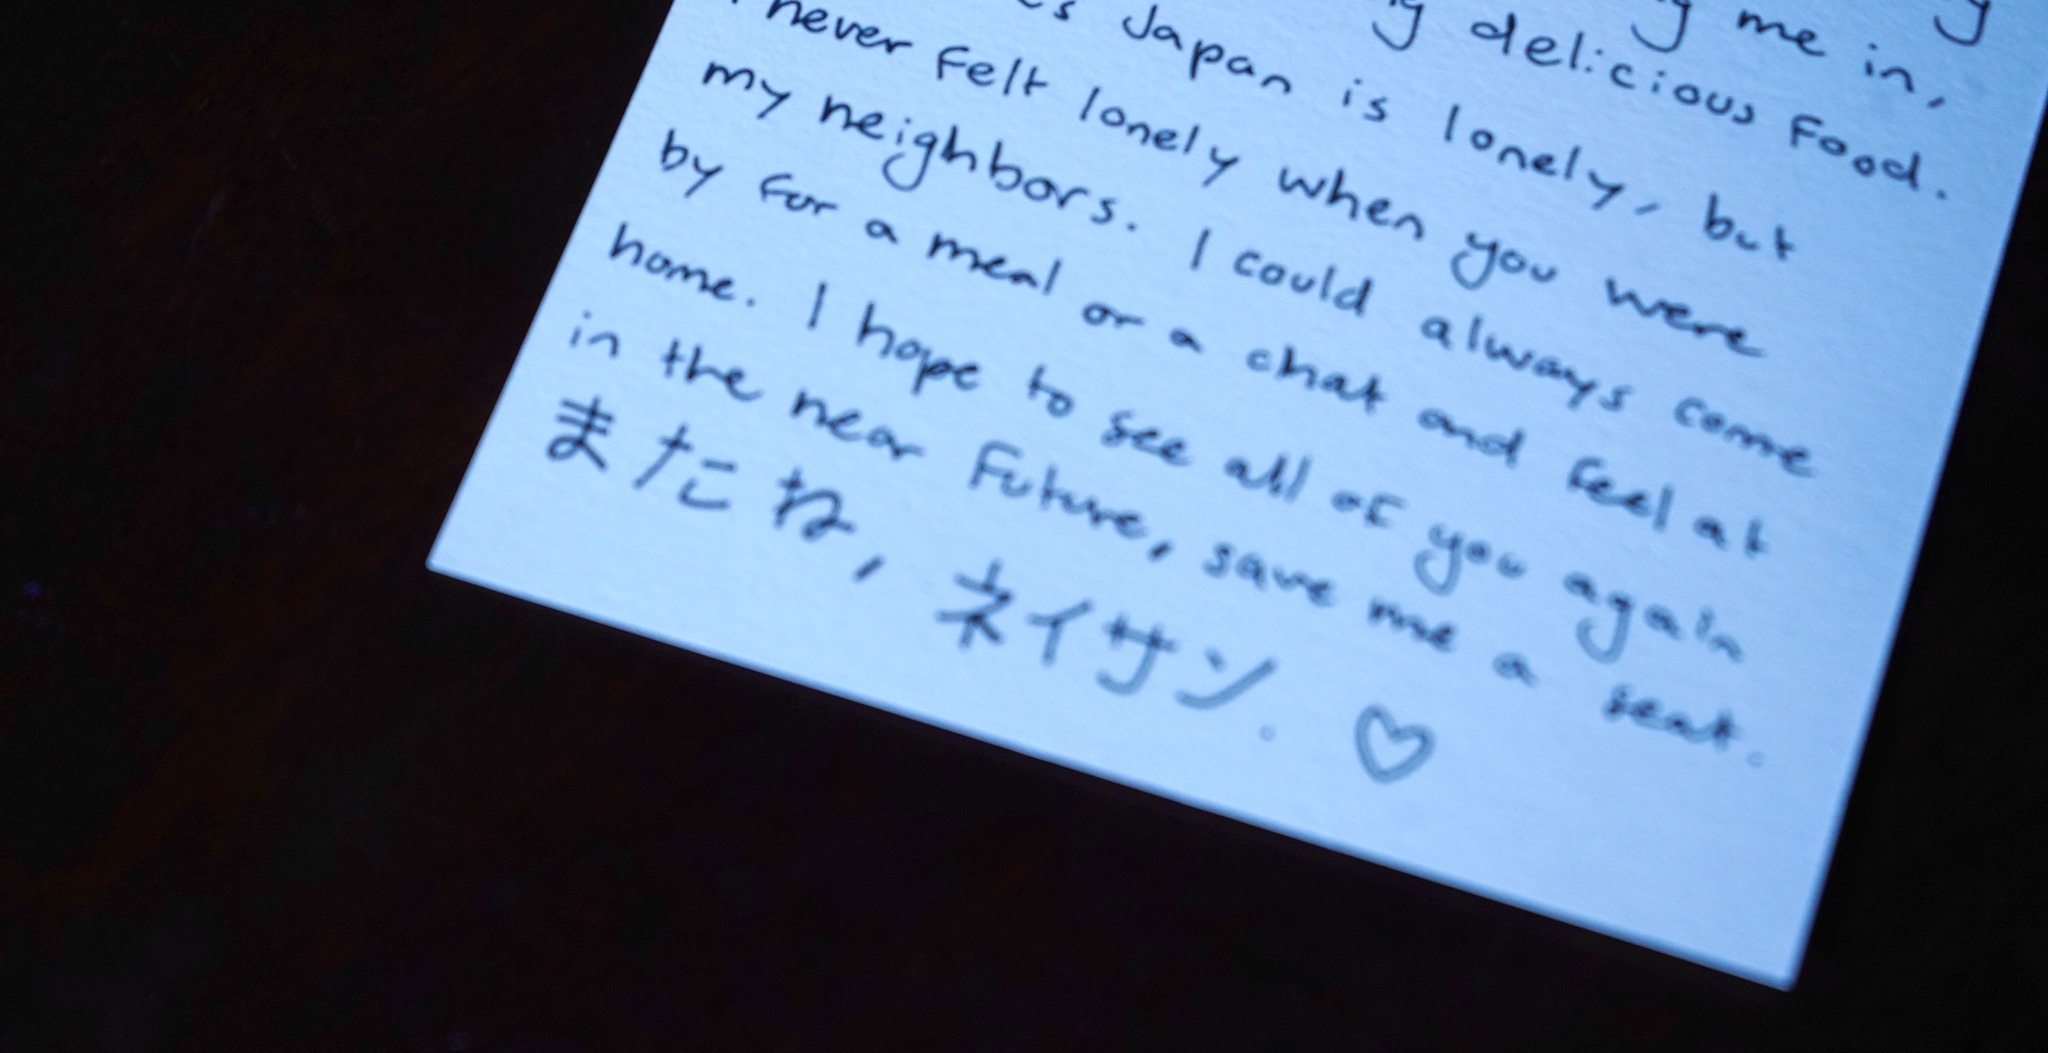 me in,
delicious food.
Japan is lonely, but
never felt lonely when you were
my neighbors. I could always come
by for a meal or a chat and feel at
home. I hope to see all of you again
in the near future, save me a seat.
またね, ネイサン. ♡